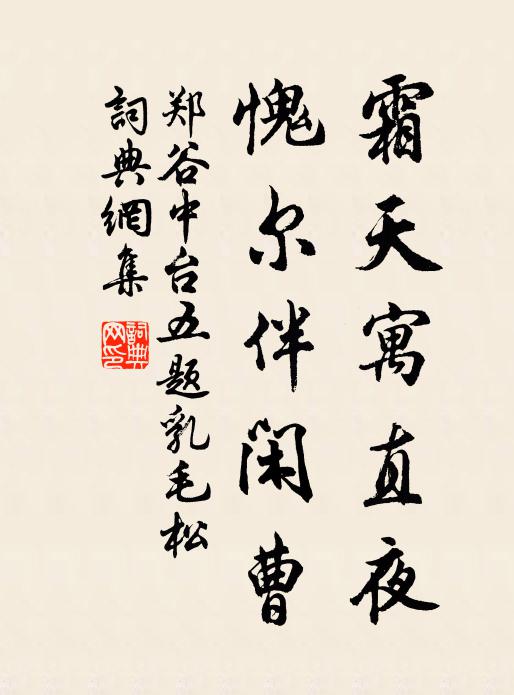 霜天寓直夜
愧尔伴闲曹
郑谷中台五题乳毛松
詞典網集
詞典
网印